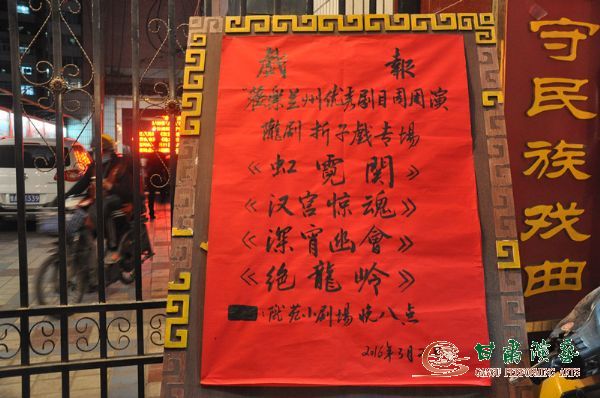 戲 報
"薈萃兰州优秀剧目周周演
隴剧 折子戲专场
《虹霓関》
《汉宫惊魂》
《深宵幽會》
《绝龍岭》
:戲苑小剧場 晚八点
2016年3月
守民族戏曲
甘肃演艺
GANSU PERFORMING ARTS